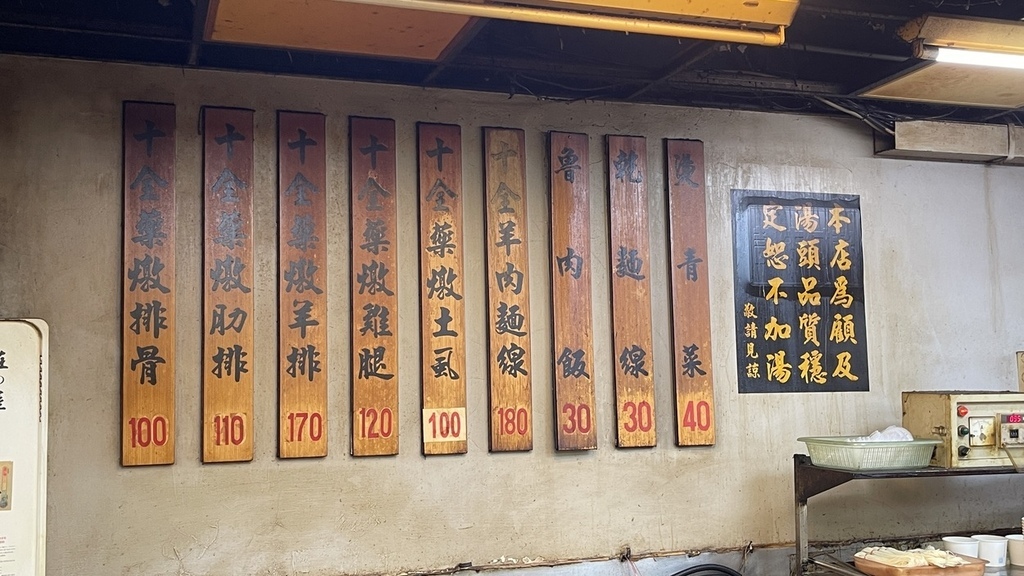 十全藥燉排骨 100
十全藥燉肋排 110
十全藥燉羊排 170
十全藥燉雞腿 120
十全藥燉土虱 100
十全羊肉麵線 180
魯肉飯 30
乾麵線 30
燙青菜 40
本店為顧及
湯頭品質穩
定恕不加湯
敬請見諒